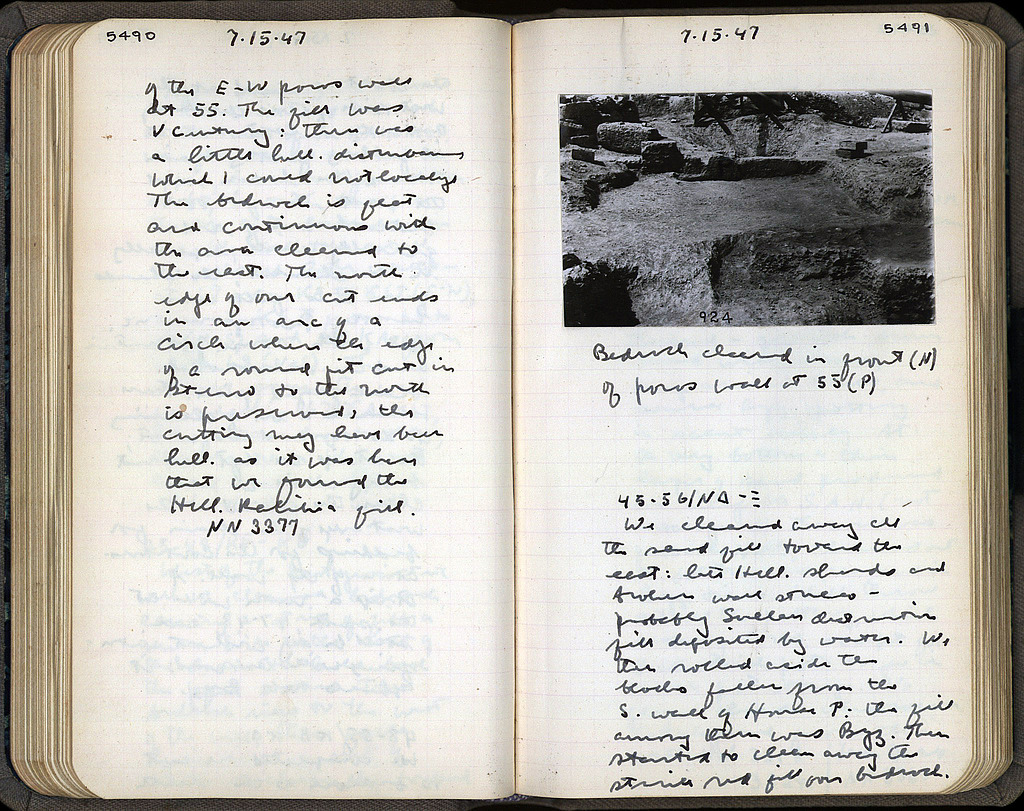 5490
7.15.47
of the E-W poros wall
at 55. The fill was
V Century: there was
a little hell. disturbance
which I could not localize
The bedrock is flat
and continuous with
the area cleared to
the east. The north
edge of our cut ends
in an arc of a
circle where the edge
of a round pit cut in
to the north
is preserved; this
cutting may have been
hell. as it was here
that we found the
Hell. fill.
NN 3377
7.15.47
5491
924
Bedrock cleared in front (N)
of poros wall at 55 (P)
45-56/ΝΔ-Ξ
We cleared away all
the sand fill toward the
east: late Hell. sherds and
broken wall stucco -
probably Sullan destruction
fill deposited by water. We
then rolled aside the
blocks fallen from the
S. wall of House P: the fill
among them was Byz. Then
started to clean away the
red fill over bedrock.